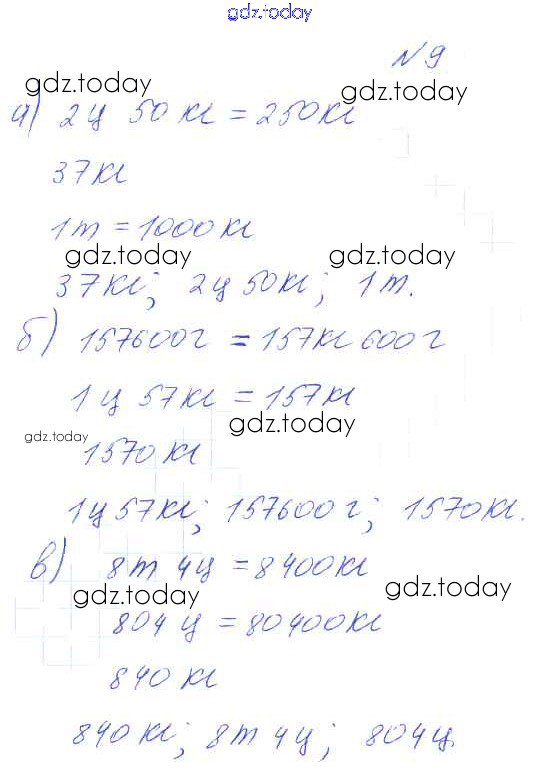 gdz.today
№ 9
gdz.today gdz.today
а) 2 ц 50 кг = 250 кг
37 кг
1 т = 1000 кг
gdz.today gdz.today
37 кг; 2 ц 50 кг; 1 т.
б) 157600 г = 157 кг 600 г
1 ц 57 кг = 157 кг
gdz.today gdz.today
1570 кг
1 ц 57 кг; 157600 г; 1570 кг.
в) 8 т 4 ц = 8400 кг
gdz.today gdz.today
804 ц = 80400 кг
840 кг
840 кг; 8 т 4 ц; 804 ц.